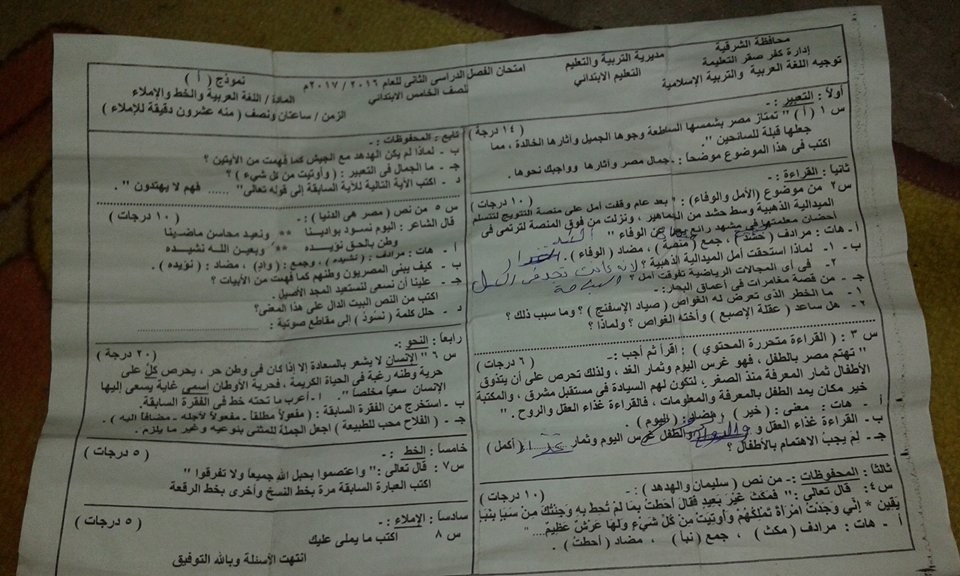 محافظة الشرقية
إدارة كفر صقر التعليمة
توجيه اللغة العربية والتربية الإسلامية
مديرية التربية والتعليم
التعليم الابتدائي
امتحان الفصل الدراسى الثانى للعام ٢٠١٦ / ٢٠١٧م
للصف الخامس الابتدائي
نموذج ( أ )
المادة / اللغة العربية والخط والإملاء
الزمن / ساعتان ونصف ( منه عشرون دقيقة للإملاء )
أولاً : التعبير : -
( ١٤ درجة )
س ١ ( أ ) " تمتاز مصر بشمسها الساطعة وجوها الجميل وآثارها الخالدة ، مما
جعلها قبلة للسائحين " .
اكتب فى هذا الموضوع موضحاً : جمال مصر وآثارها وواجبك نحوها .
ثانياً : القراءة : -
( ١٠ درجات )
س٢ من موضوع (الأمل والوفاء) : " بعد عام وقفت أمل على منصة التتويج لتتسلم
الميدالية الذهبية وسط حشد من الجماهير ، ونزلت من فوق المنصة لترتمى فى
أحضان معلمتها فى مشهد رائع من الوفاء "
أ - هات : مرادف ( حشد ) ، جمع ( منصة ) ، مضاد ( الوفاء ) .
ب - ١- لماذا استحقت أمل الميدالية الذهبية ؟
٢- فى أى المجالات الرياضية تفوقت أمل ؟ السباحة
جـ - من قصة مغامرات فى أعماق البحر:-
١ - ما الخطر الذى تعرض له الغواص ( صياد الإسفنج ) ؟ وما سبب ذلك ؟
٢ - هل ساعد ( عقلة الإصبع ) وأخته الغواص ؟ ولماذا ؟
س ٣ : ( القراءة متحررة المحتوى ) : اقرأ ثم أجب :-
( ٦ درجات )
" تهتم مصر بالطفل ، فهو غرس اليوم وثمار الغد ، ولذلك تحرص على أن يتذوق
الأطفال ثمار المعرفة منذ الصغر ، لتكون لهم السيادة فى مستقبل مشرق ، والمكتبة
خير مكان يمد الطفل بالمعرفة والمعلومات ، فالقراءة غذاء العقل والروح . "
أ - هات : معنى : ( خير ) ، مضاد : ( اليوم ) .
ب - القراءة غذاء العقل و والطفل غرس اليوم وثمار (أكمل)
جـ - لم يجب الاهتمام بالأطفال ؟
ثالثاً : المحفوظات : - من نص ( سليمان والهدهد ) :-
( ١٠ درجات )
س٤: قال تعالى :" فمكث غير بعيد فقال أحطت بما لم تحط به وجئتك من سبإ بنبإ
يقين * إني وجدت امرأة تملكهم وأوتيت من كل شيء ولها عرش عظيم ....."
أ - هات : مرادف ( مكث ) ، جمع ( نبأ ) ، مضاد ( أحطت ) .
تابع : المحفوظات : -
ب - لماذا لم يكن الهدهد مع الجيش كما فهمت من الأيتين ؟
جـ - ما الجمال فى التعبير : ( وأوتيت من كل شيء ) ؟
د - اكتب الآية التالية للآية السابقة إلى قوله تعالى " ..... فهم لا يهتدون " .
س ٥ من نص ( مصر هى الدنيا ) : -
( ١٠ درجات )
قال الشاعر : اليوم نسود بوادينا ** ونعيد محاسن ماضينا
وطن بالحق نؤيده ** وبعين الله نشيده
أ - هات : مرادف : ( نشيده ) ، وجمع : ( واد) ، مضاد : ( نؤيده ) .
ب - كيف يبنى المصريون وطنهم كما فهمت من الأبيات ؟
جـ - علينا أن نسعى لنستعيد المجد الأصيل .
اكتب من النص البيت الدال على هذا المعنى؟
د - حلل كلمة ( نسود ) إلى مقاطع صوتية :
رابعاً : النحو :-
( ٢٠ درجة )
س ٦ " الإنسان لا يشعر بالسعادة إلا إذا كان فى وطن حر ، يحرص كل على
حرية وطنه رغبة فى الحياة الكريمة ، فحرية الأوطان أسمى غاية يسعى إليها
الإنسان سعياً مخلصاً ". أ - أعرب ما تحته خط فى الفقرة السابقة
ب - استخرج من الفقرة السابقة : ( مفعولاً مطلقاً - مفعولاً لأجله - مضافاً إليه ) .
جـ - ( الفلاح محب للطبيعة ) اجعل الجملة للمثنى بنوعيه وغير ما يلزم .
خامساً : الخط : -
( ٥ درجات )
س٧: قال تعالى :" واعتصموا بحبل الله جميعاً ولا تفرقوا "
اكتب العبارة السابقة مرة بخط النسخ وأخرى بخط الرقعة
سادساً : الإملاء : -
( ٥ درجات )
س ٨ اكتب ما يملى عليك
انتهت الأسئلة وبالله التوفيق